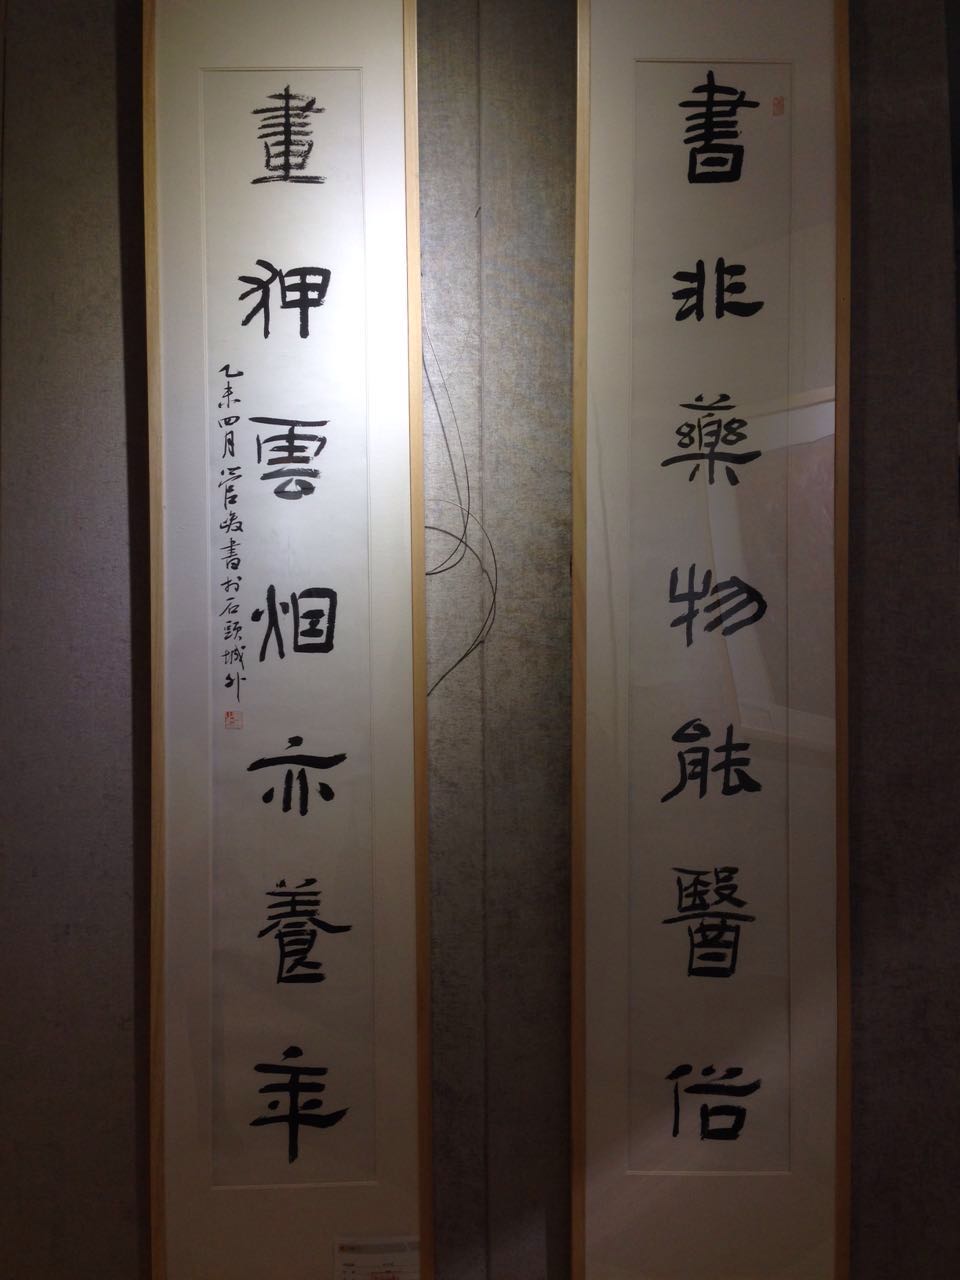 書非藥物能醫俗
畫狎雲烟亦養年
乙未四月管峻書於石頭城外